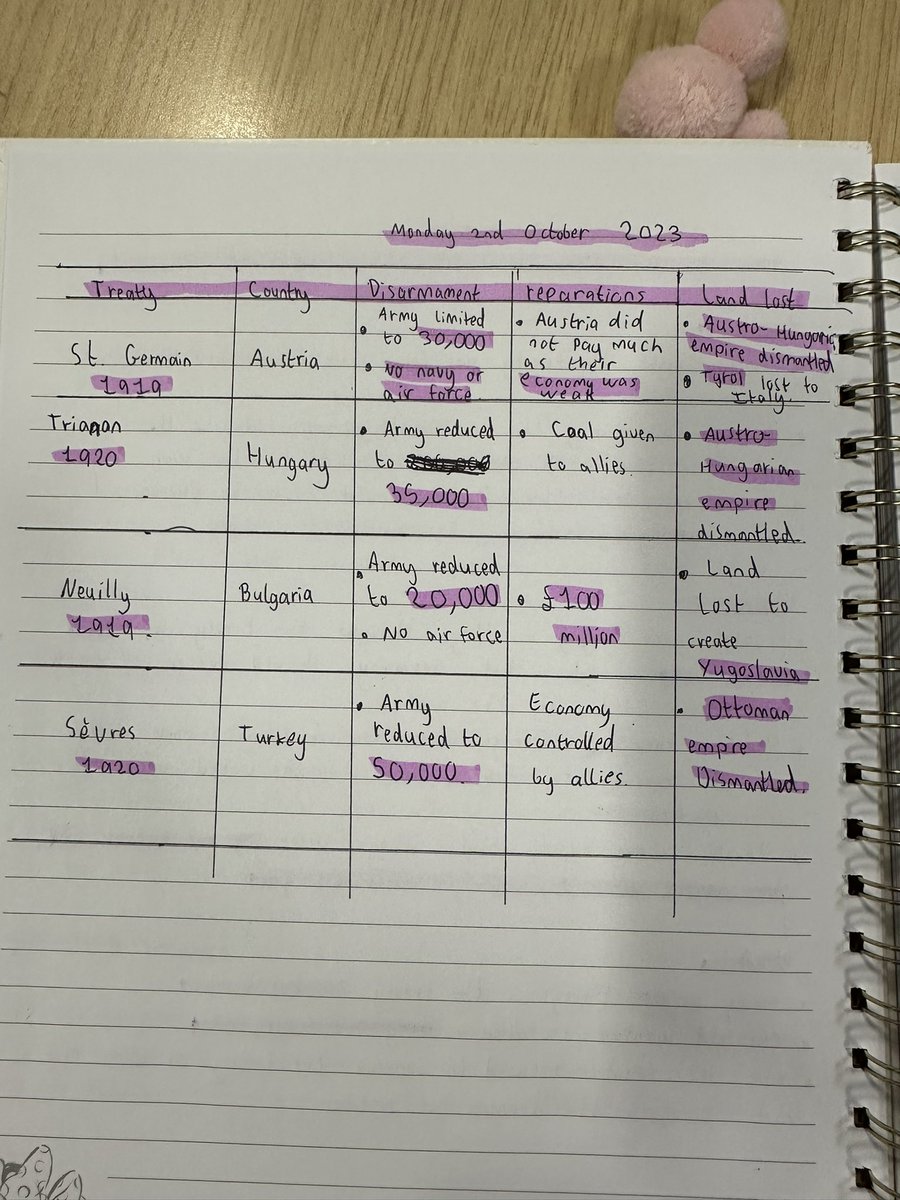 Monday 2nd October 2023
Treaty Country Disarmament reparations Land lost
St. Germain
1919
Austria
• Army limited
to 30,000
• No navy or
air force.
• Austria did
not pay much
as their
economy was
weak
• Austro-Hungaric
empire dismantled
• Tyrol lost to
Italy.
Trianon
1920
Hungary
• Army reduced
to
35,000
• Coal given
to allies.
• Austro-
Hungarian
empire
dismantled.
Neuilly
1919.
Bulgaria
• Army reduced
to 20,000
• No air force
• £100
million
• Land
Lost to
create
Yugoslavia
Sèvres
1920
Turkey
• Army
reduced to
50,000.
Economy
controlled
by allies.
• Ottoman
empire
Dismantled.